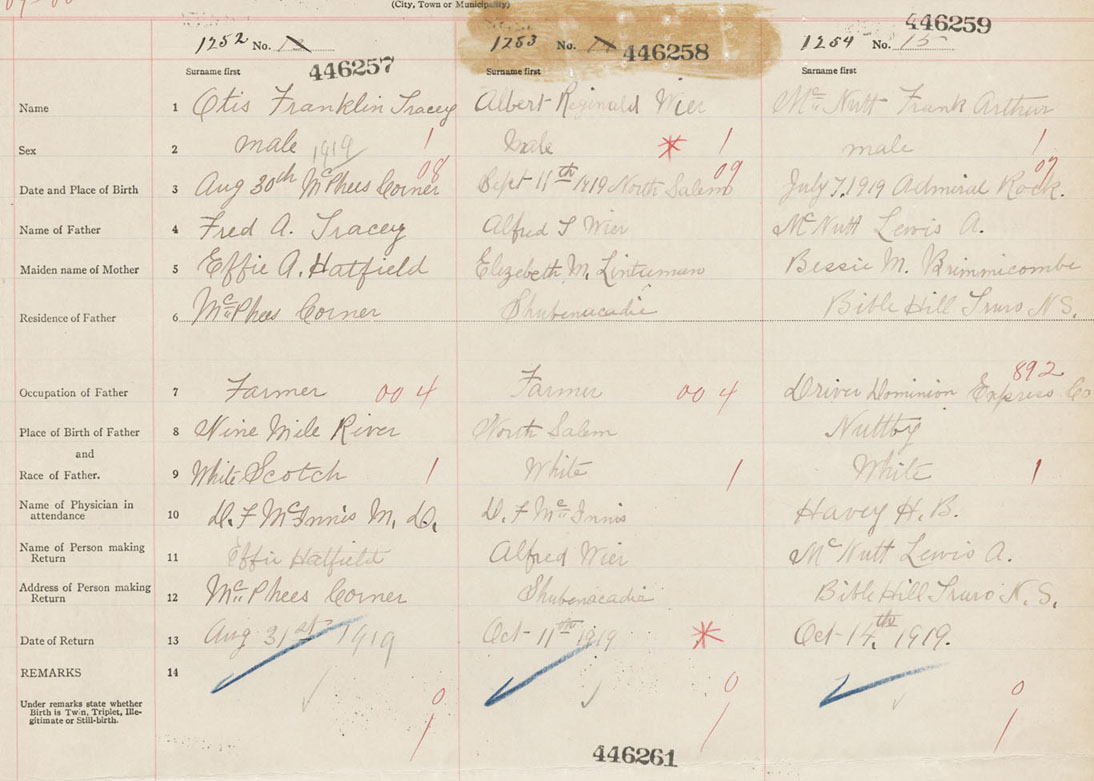 (City, Town or Municipality)
1252 No. 446257
1253 No. 446258
1254 No. 15 446259
Surname first Surname first Surname first
Name 1 Otis Franklin Tracey Albert Reginald Wier McNutt Frank Arthur
Sex 2 male 1919 1 male * 1 male 1
08 09 07
Date and Place of Birth 3 Aug 30th McPhees Corner Sept 11th 1919 North Salem July 7, 1919 Admiral Rock.
Name of Father 4 Fred A. Tracey Alfred T Wier McNutt Lewis A.
Maiden name of Mother 5 Effie A. Hatfield Elizebeth M. Bessie M. Brimmicombe
Residence of Father 6 McPhees Corner Shubenacadie Bible Hill Truro N.S.
892
Occupation of Father 7 Farmer 00 4 Farmer 00 4 Driver Dominion Express Co
Place of Birth of Father 8 Nine Mile River North Salem Nuttby
and
Race of Father. 9 White Scotch 1 White 1 White 1
Name of Physician in
attendance 10 D. F McInnis M. D. D. F McInnis Havey H. B.
Name of Person making
Return 11 Effie Hatfield Alfred Wier McNutt Lewis A.
Address of Person making
Return 12 McPhees Corner Shubenacadie Bible Hill Truro N. S.
Date of Return 13 Aug 31st 1919 Oct 11th 1919 * Oct 14th, 1919.
REMARKS 14
Under remarks state whether
Birth is Twin, Triplet, Ille-
gitimate or Still-birth.
0 0 0
1 1 1
446261